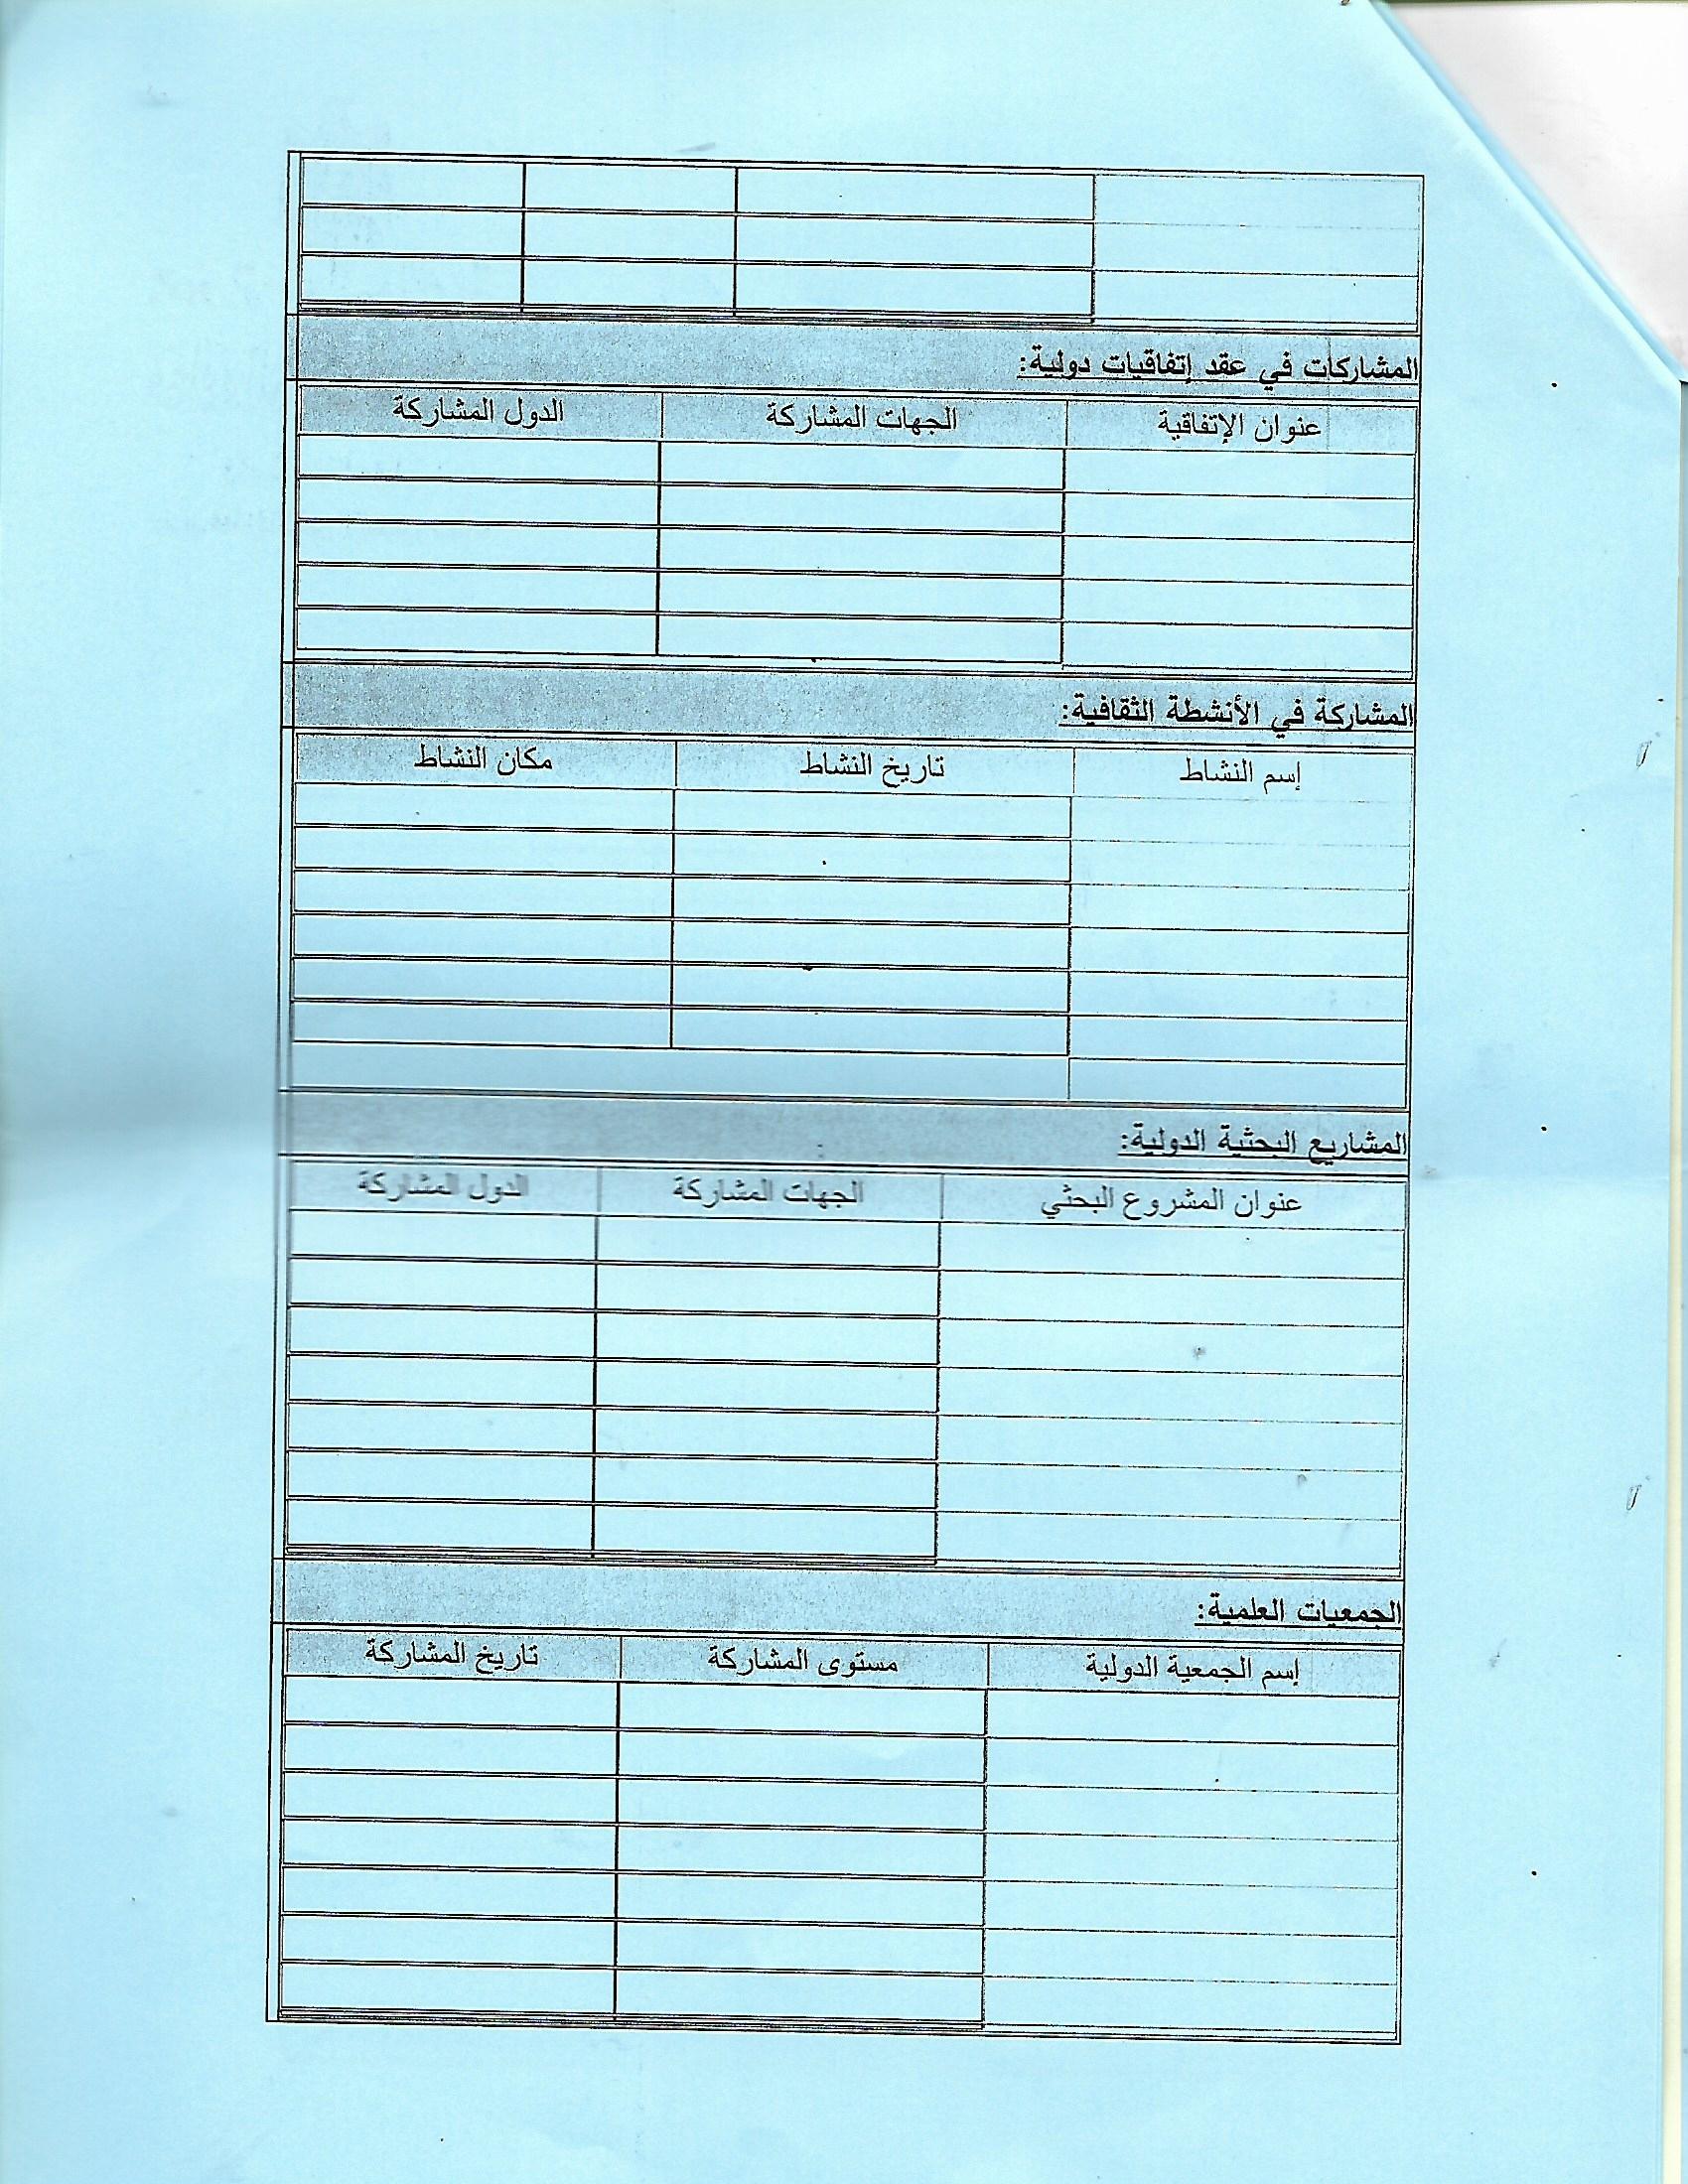 المشاركات في عقد إتفاقيات دولية:
عنوان الإتفاقية الجهات المشاركة الدول المشاركة
المشاركة في الأنشطة الثقافية:
إسم النشاط تاريخ النشاط مكان النشاط
المشاريع البحثية الدولية:
عنوان المشروع البحثي الجهات المشاركة الدول المشاركة
الجمعيات العلمية:
إسم الجمعية الدولية مستوى المشاركة تاريخ المشاركة